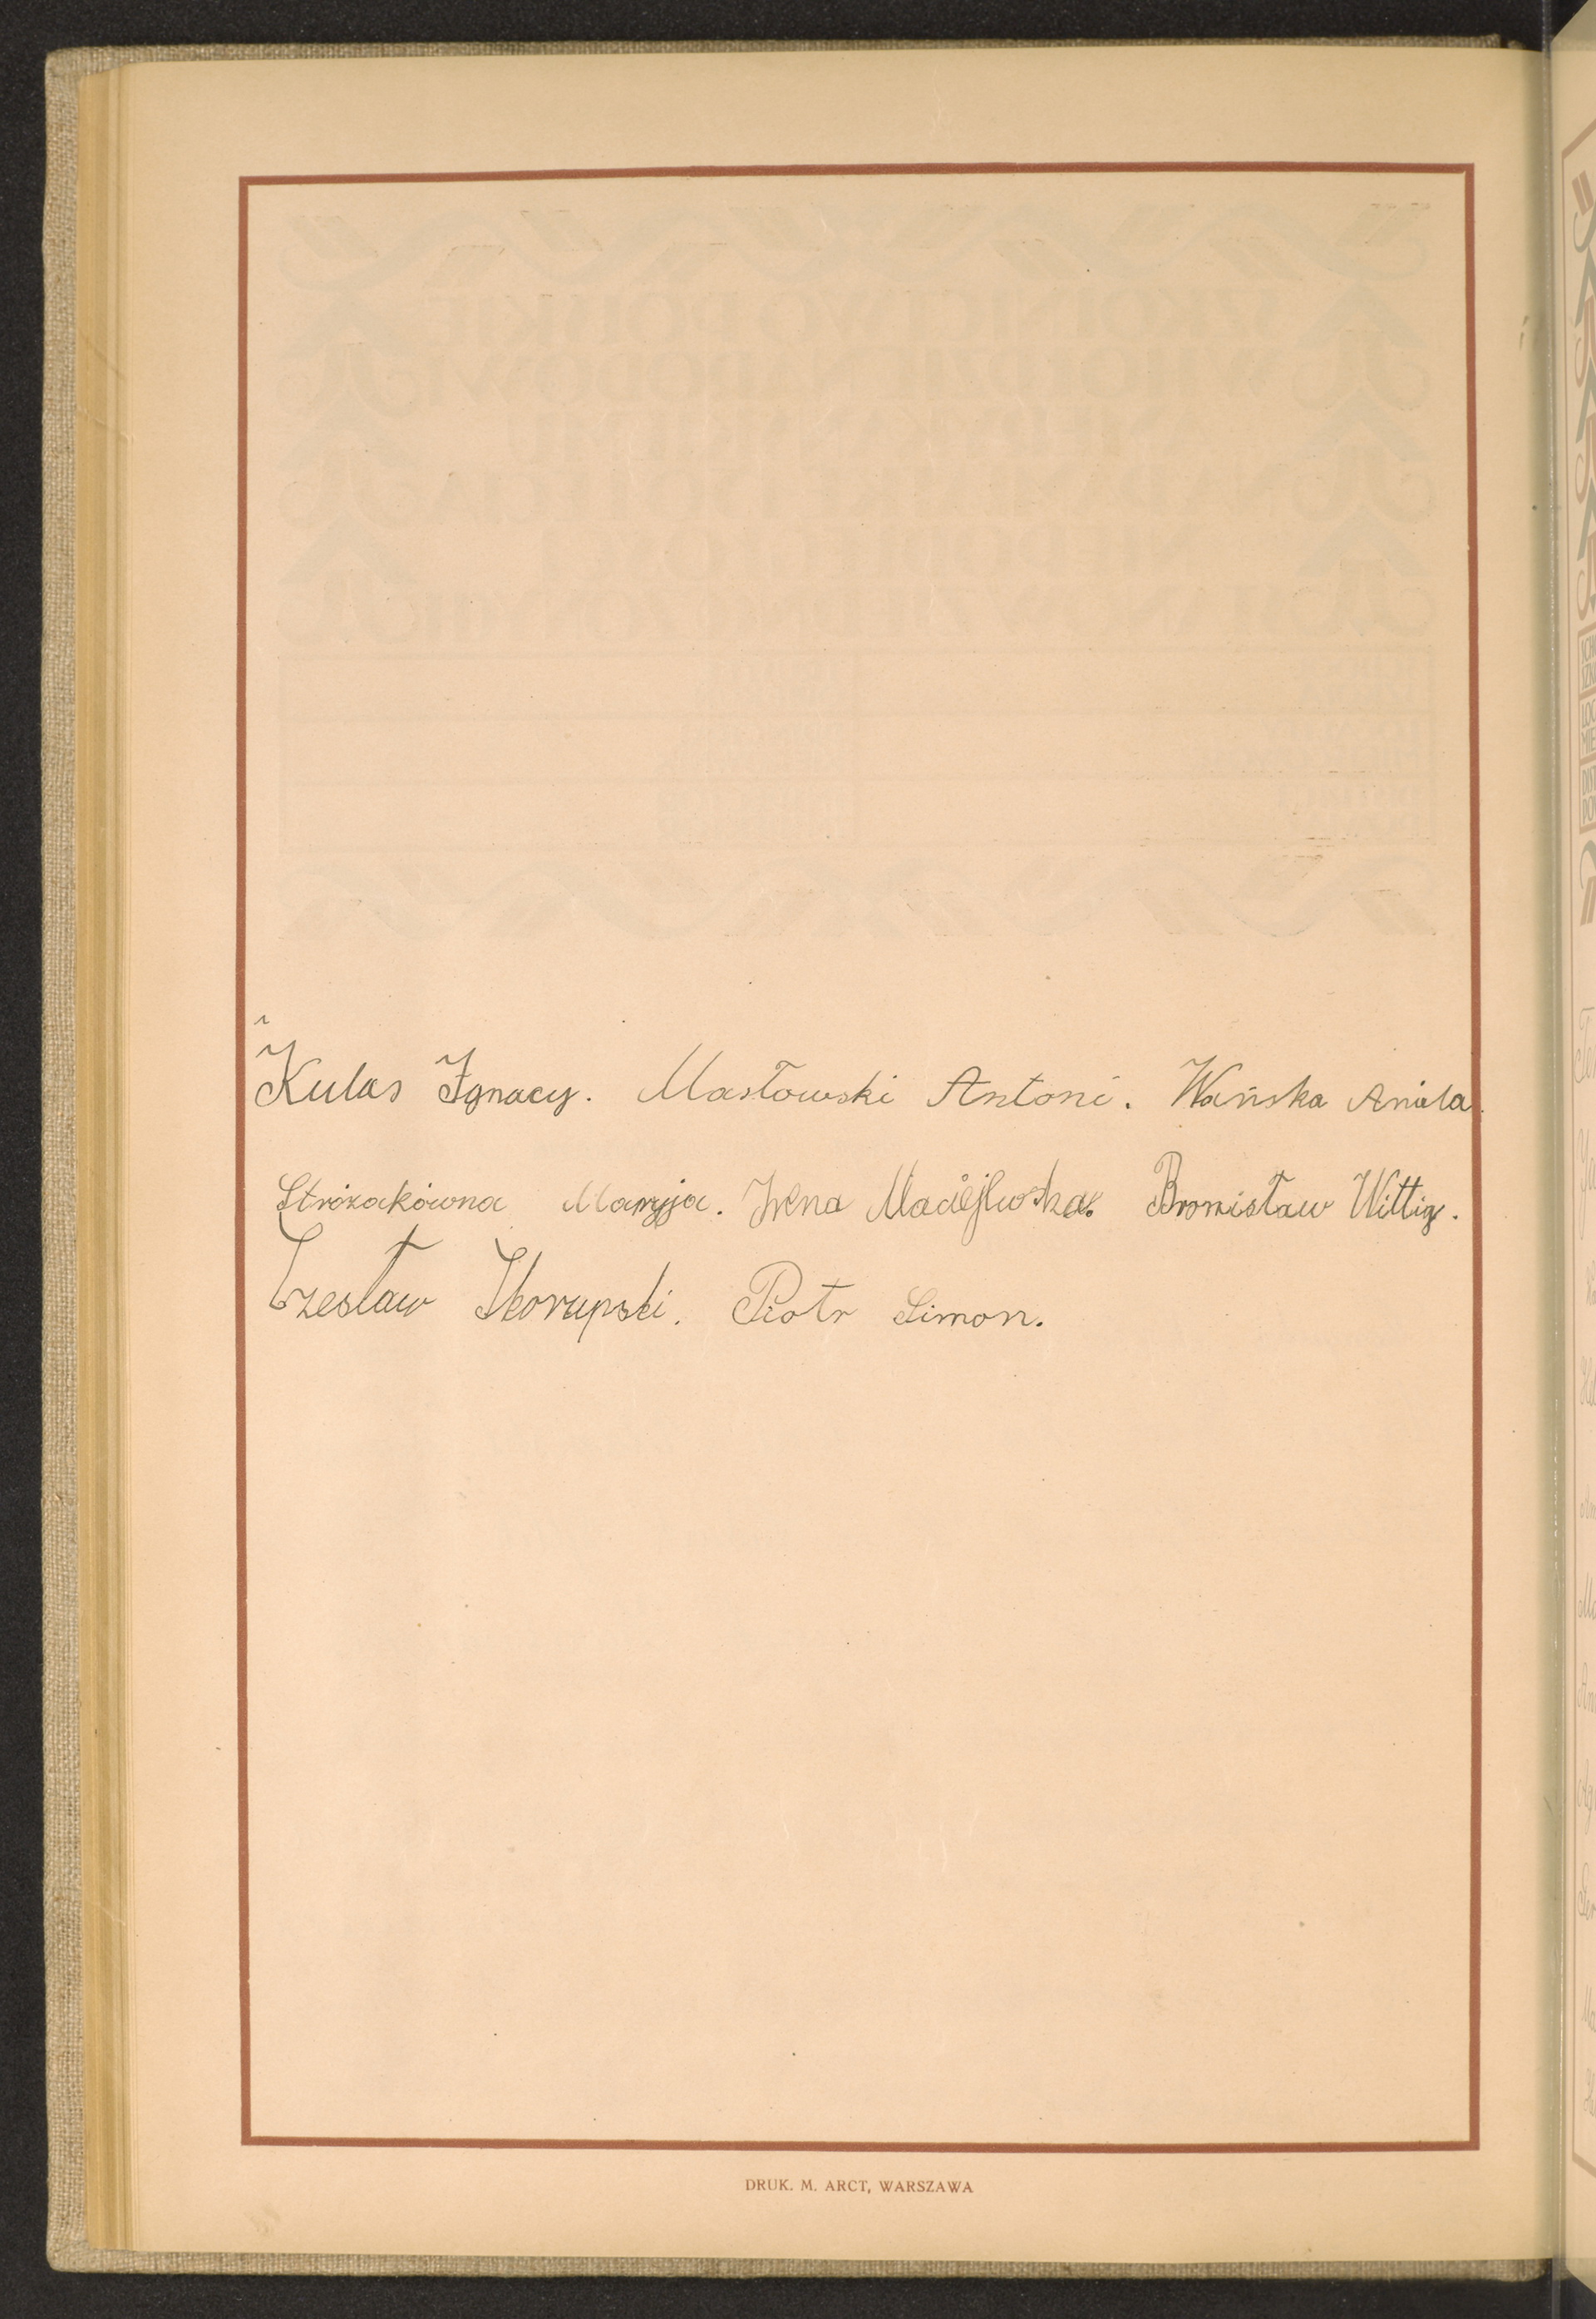 Kulas Ignacy. Masłowski Antoni. Wańska Aniela.
Stróżakówna Maryja. Irena Maciejewska. Bronisław Wittig.
Czesław Skorupski. Piotr Simon.
DRUK. M. ARCT, WARSZAWA